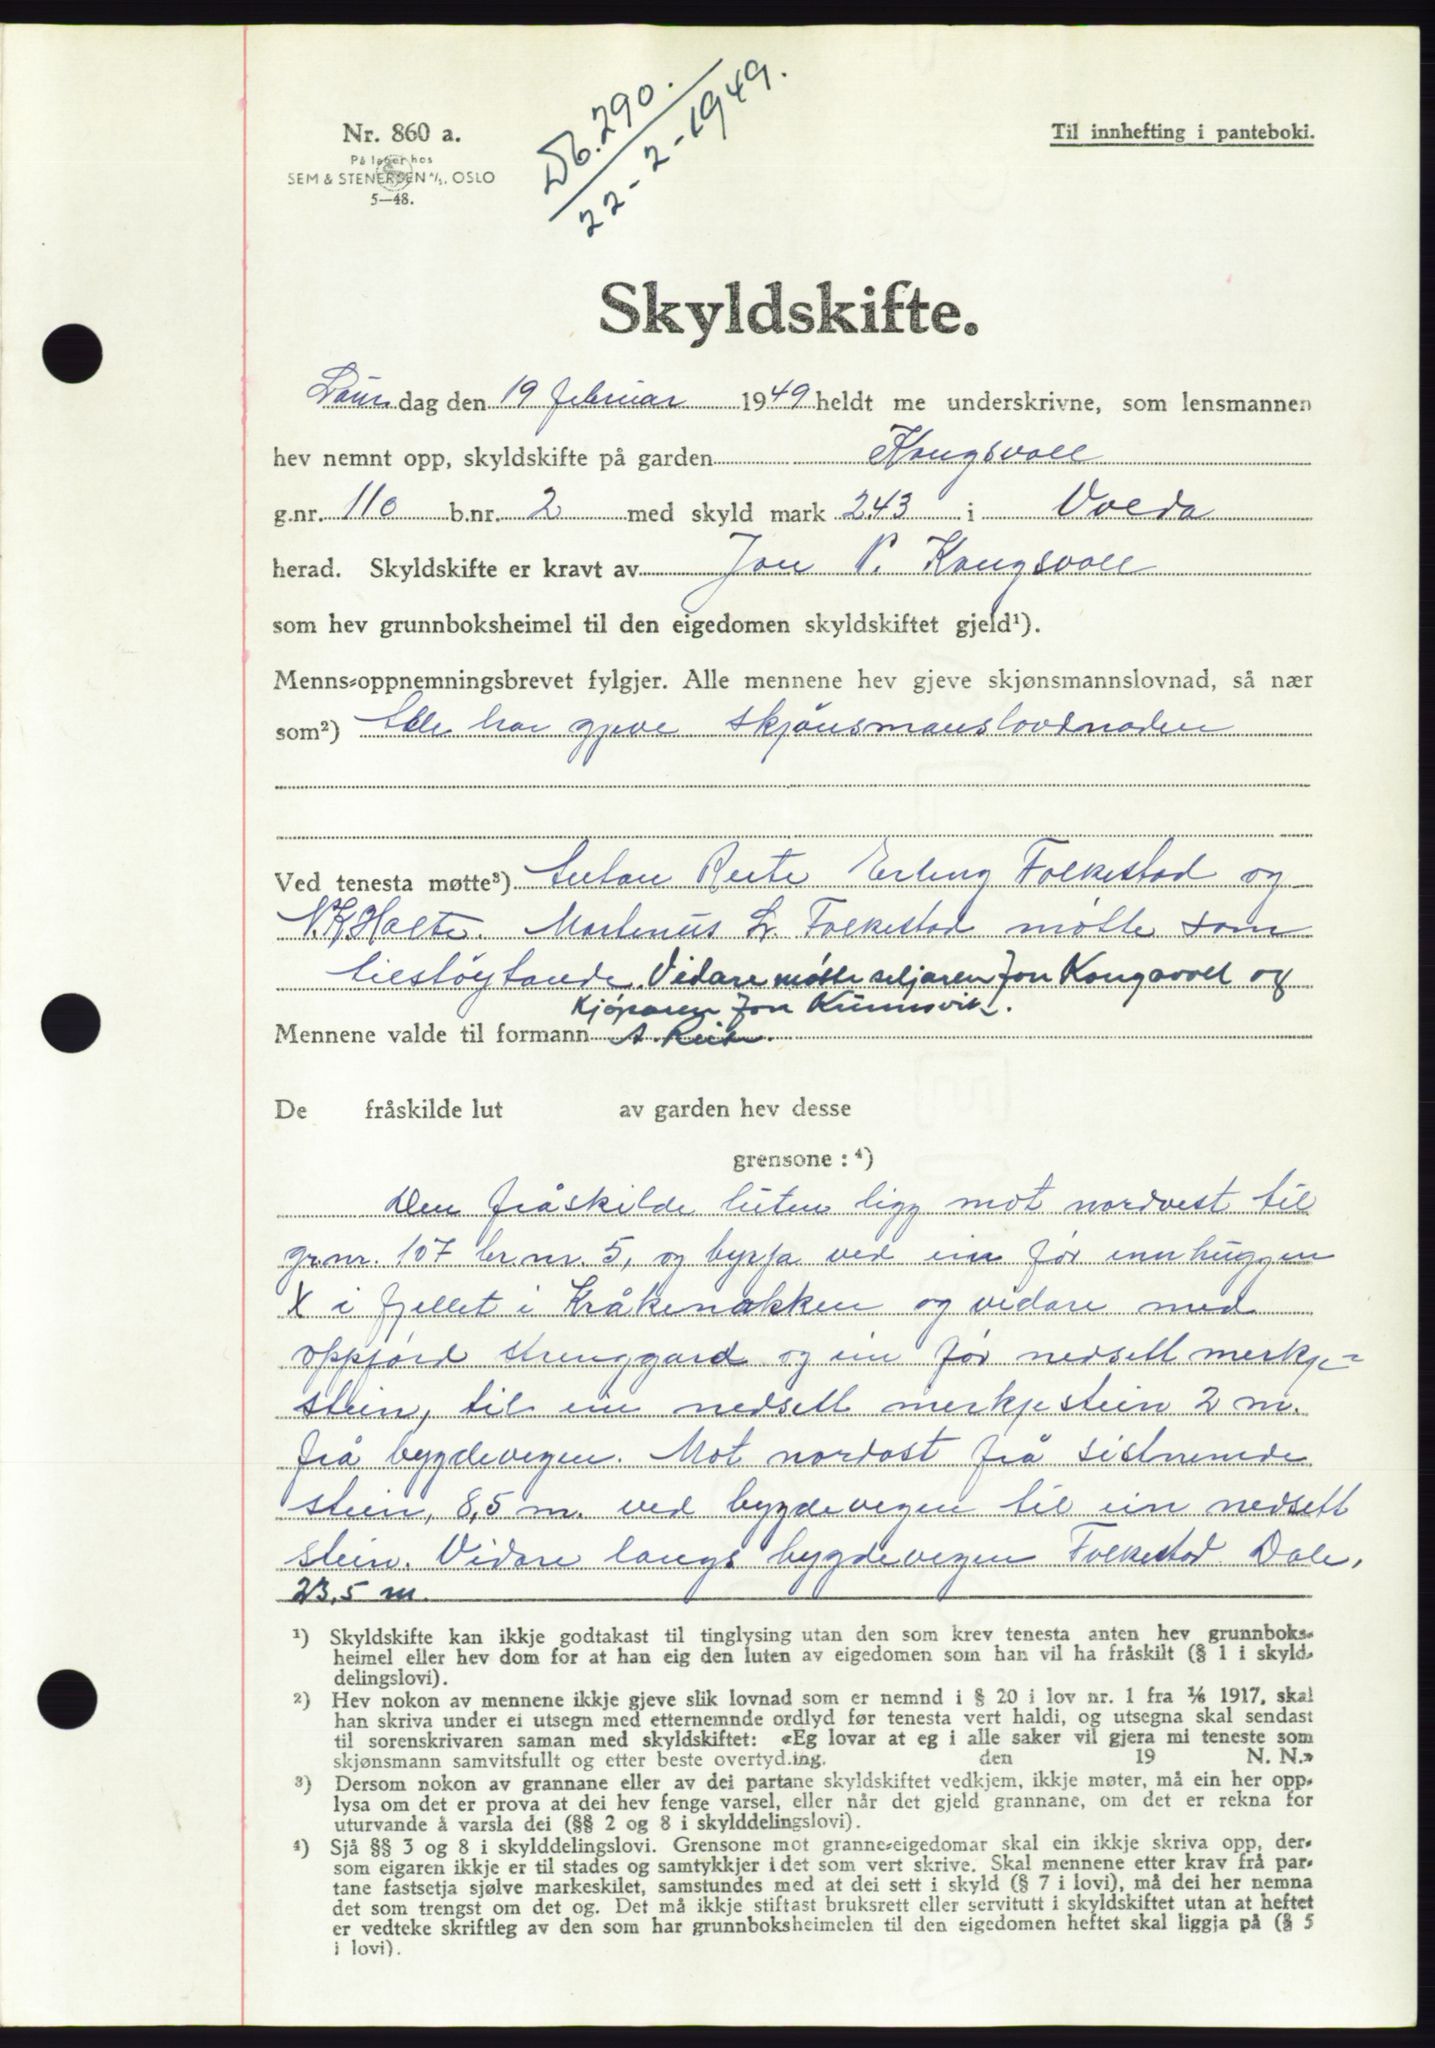 Nr. 860 a.
På lager hos
SEM & STENERSEN A/S, OSLO
5—48.
Db. 290.
22-2-1949.
Til innhefting i panteboki.
Skyldskifte.
Laurdag den 19 februar 1949 heldt me underskrivne, som lensmannen
hev nemnt opp, skyldskifte på garden Kongsvoll
g.nr. 110 b.nr. 2 med skyld mark 2.43 i Volda
herad. Skyldskifte er kravt av Jon P. Kongsvoll
som hev grunnboksheimel til den eigedomen skyldskiftet gjeld¹).
Menns-oppnemningsbrevet fylgjer. Alle mennene hev gjeve skjønsmannslovnad, så nær
som²) Alle har gjeve skjönsmanslovdnaden
Ved tenesta møtte³) Anton Reite Erling Folkestad og
N.K.Holte. Martinus L. Folkestad møtte som
tilstöytande. Vidare møtte seljaren Jon Kongsvoll og
Kjöparen Jon
Mennene valde til formann A. Reite.
De fråskilde lut av garden hev desse
grensone :⁴)
Den fråskilde luten ligg mot nordvest til
gr.nr. 107 br.nr. 5, og byrja ved ein för innhuggen
X i fjellet i Kråkenakken og vidare med
oppförd strenggard og ein för nedsett merkje-
stein, til ein nedsett merkjestein 2 m.
frå bygdevegen. Mot nordost frå sistnemde
stein, 8,5 m. ved bygdevegen til ein nedsett
stein. Vidare langs bygdevegen Folkestad Dale,
23,5 m.
¹) Skyldskifte kan ikkje godtakast til tinglysing utan den som krev tenesta anten hev grunnboks-
heimel eller hev dom for at han eig den luten av eigedomen som han vil ha fråskilt (§ 1 i skyld-
delingslovi).
²) Hev nokon av mennene ikkje gjeve slik lovnad som er nemnd i § 20 i lov nr. 1 fra 1/6 1917, skal
han skriva under ei utsegn med etternemnde ordlyd før tenesta vert haldi, og utsegna skal sendast
til sorenskrivaren saman med skyldskiftet: «Eg lovar at eg i alle saker vil gjera mi teneste som
skjønsmann samvitsfullt og etter beste overtyding. den 19 N. N.»
³) Dersom nokon av grannane eller av dei partane skyldskiftet vedkjem, ikkje møter, må ein her opp-
lysa om det er prova at dei hev fenge varsel, eller når det gjeld grannane, om det er rekna for
uturvande å varsla dei (§§ 2 og 8 i skylddelingslovi).
⁴) Sjå §§ 3 og 8 i skylddelingslovi. Grensone mot granne-eigedomar skal ein ikkje skriva opp, der-
som eigaren ikkje er til stades og samtykkjer i det som vert skrive. Skal mennene etter krav frå par-
tane fastsetja sjølve markeskilet, samstundes med at dei sett i skyld (§ 7 i lovi), må dei her nemna
det som trengst om det og. Det må ikkje stiftast bruksrett eller servitutt i skyldskiftet utan at heftet
er vedteke skriftleg av den som har grunnboksheimelen til den eigedomen heftet skal liggja på (§ 5
i lovi).